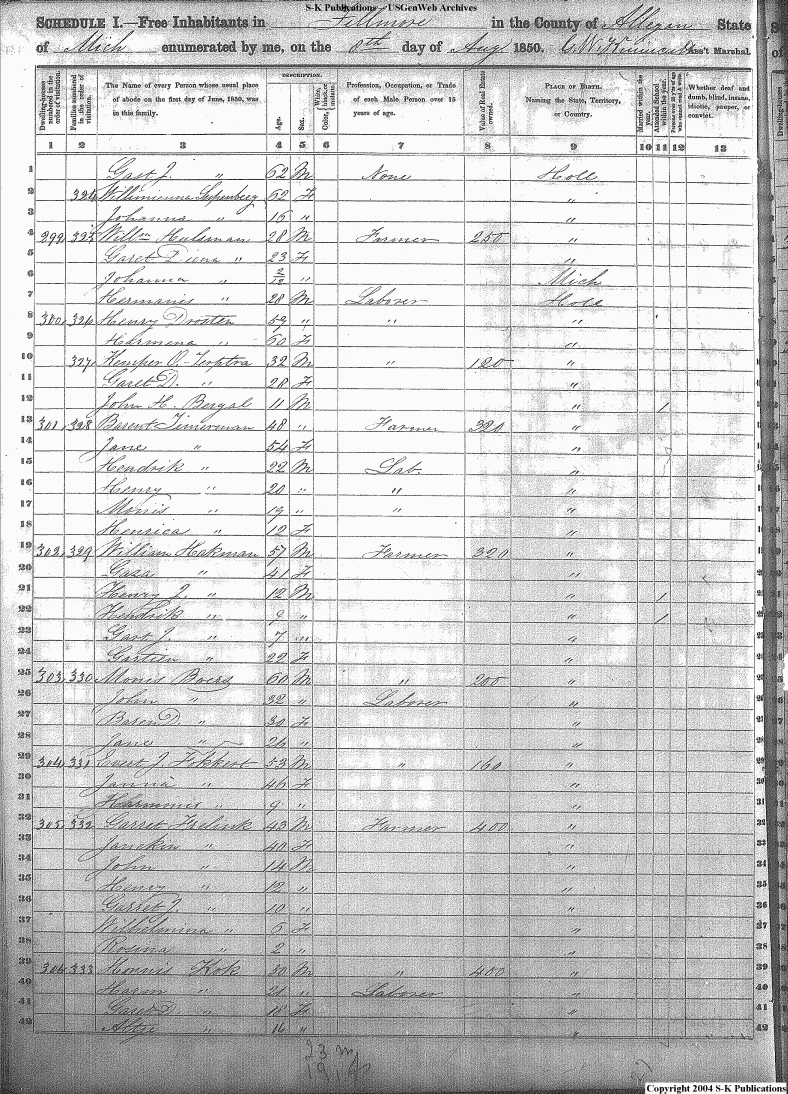 S-K Publications – USGenWeb Archives
SCHEDULE I.—Free Inhabitants in Fillmore in the County of Allegan State
of Mich enumerated by me, on the 8th day of Aug 1850. C. W. Ass't Marshal.
Dwelling-houses numbered in the order of visitation.
Families numbered in the order of visitation.
The Name of every Person whose usual place of abode on the first day of June, 1850, was in this family.
DESCRIPTION.
Age.
Sex.
Color, White, black, or mulatto.
Profession, Occupation, or Trade of each Male Person over 15 years of age.
Value of Real Estate owned.
PLACE OF BIRTH. Naming the State, Territory, or Country.
Married within the year.
Attended School within the year.
Persons over 20 y'rs of age who cannot read & write.
Whether deaf and dumb, blind, insane, idiotic, pauper, or convict.
1 2 3 4 5 6 7 8 9 10 11 12 13
1 Gast J. " 62 M None Holl
2 324 Willimienna 62 F "
3 Johanna " 16 " "
4 299 325 Willm Hulsman 28 M Farmer 250 "
5 Garet Diena " 23 F "
6 Johanna " 2/12 " Mich
7 Hermanis " 28 M Laborer Holl
8 300 326 Henry Drosten 59 " " "
9 Harmena " 60 F "
10 327 Kemper O. Terpstra 32 M " 120 "
11 Garet D. " 28 F "
12 John H. Bergal 11 M " 1
13 301 328 Barent Timerman 48 " Farmer 320 "
14 Jane " 54 F "
15 Hendrik " 22 M Lab. "
16 Henry " 20 " " "
17 Monis " 19 " " "
18 Henrica " 12 F "
19 302 329 William Hakman 57 M Farmer 320 "
20 Gaza " 41 F "
21 Henry J. " 12 M " 1
22 Hendrik " 9 " " 1
23 Gast J. " 7 " "
24 Gartien " 22 F "
25 303 330 Monis Boers 60 M " 200 "
26 John " 32 " Laborer "
27 Baren D. " 30 F "
28 Jane " 26 " "
29 304 331 Evert J. Fokkert 53 M " 160 "
30 Janna " 46 F "
31 Harmmis " 9 " "
32 305 332 Garset Frelink 43 M Farmer 400 "
33 Janekin " 40 F "
34 John " 14 M "
35 Henry " 12 " "
36 Garret J. " 10 " "
37 Wilhelmina " 5 F "
38 Rosena " 2 " "
39 306 333 Honnis Kok 50 M " 400 "
40 Harm " 21 " Laborer "
41 Garet D. " 18 F "
42 Altje " 16 " "
23 m
19 f
Copyright 2004 S-K Publications